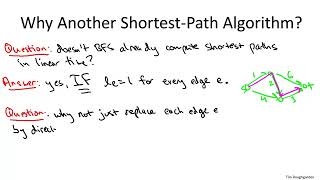 Why Another Shortest-Path Algorithm?
Question: doesn't BFS already compute shortest paths
in linear time?
Answer: yes, IF le=1 for every edge e.
1 2 6
4 3
Question: why not just replace each edge e
by direct
Tim Roughgarden